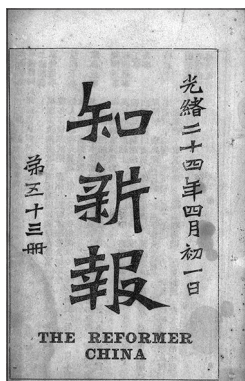 光緒二十四年四月初一日
知新報
第五十三冊
THE REFORMER
CHINA